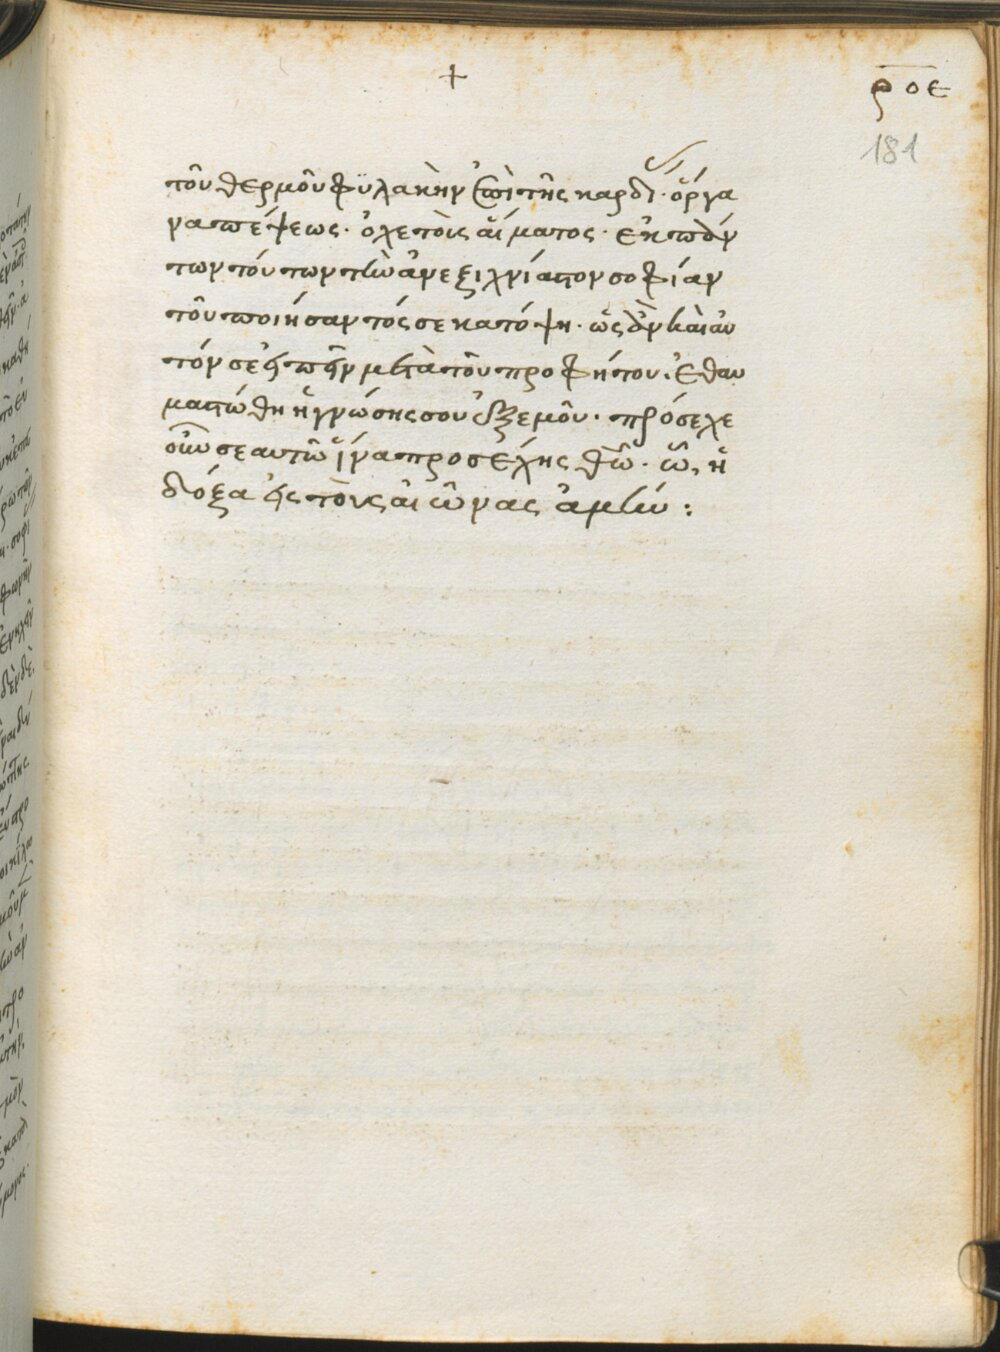 +
ροε
181
τοῦ θερμοῦ φυλακὴν ἐπὶ τῆς καρδί· ὄργα
να πέψεως· ὀχετοὶς αἵματος· ἐκ πάν
των τούτων τὴν ἀνεξιχνίαστον σοφίαν
τοῦ ποιήσαντός σε κατόψη· ὡς ἂν καὶ αυ
τόν σε εἰπεῖν μετὰ τοῦ προφήτου· Ἐθαυ
μαστώθη ἡ γνώσης σου ἐξ ἐμοῦ· πρόσεχε
οὖν σεαυτῶ ἵνα προσέχης θῶ· ὧ, ἡ
δόξα εἰς τοὺς αἰῶνας ἀμήν: